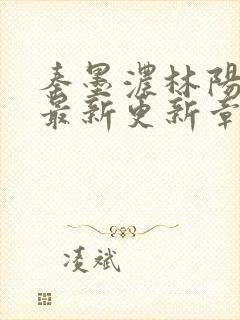 秦墨濃林陽
最新更新章
凌斌